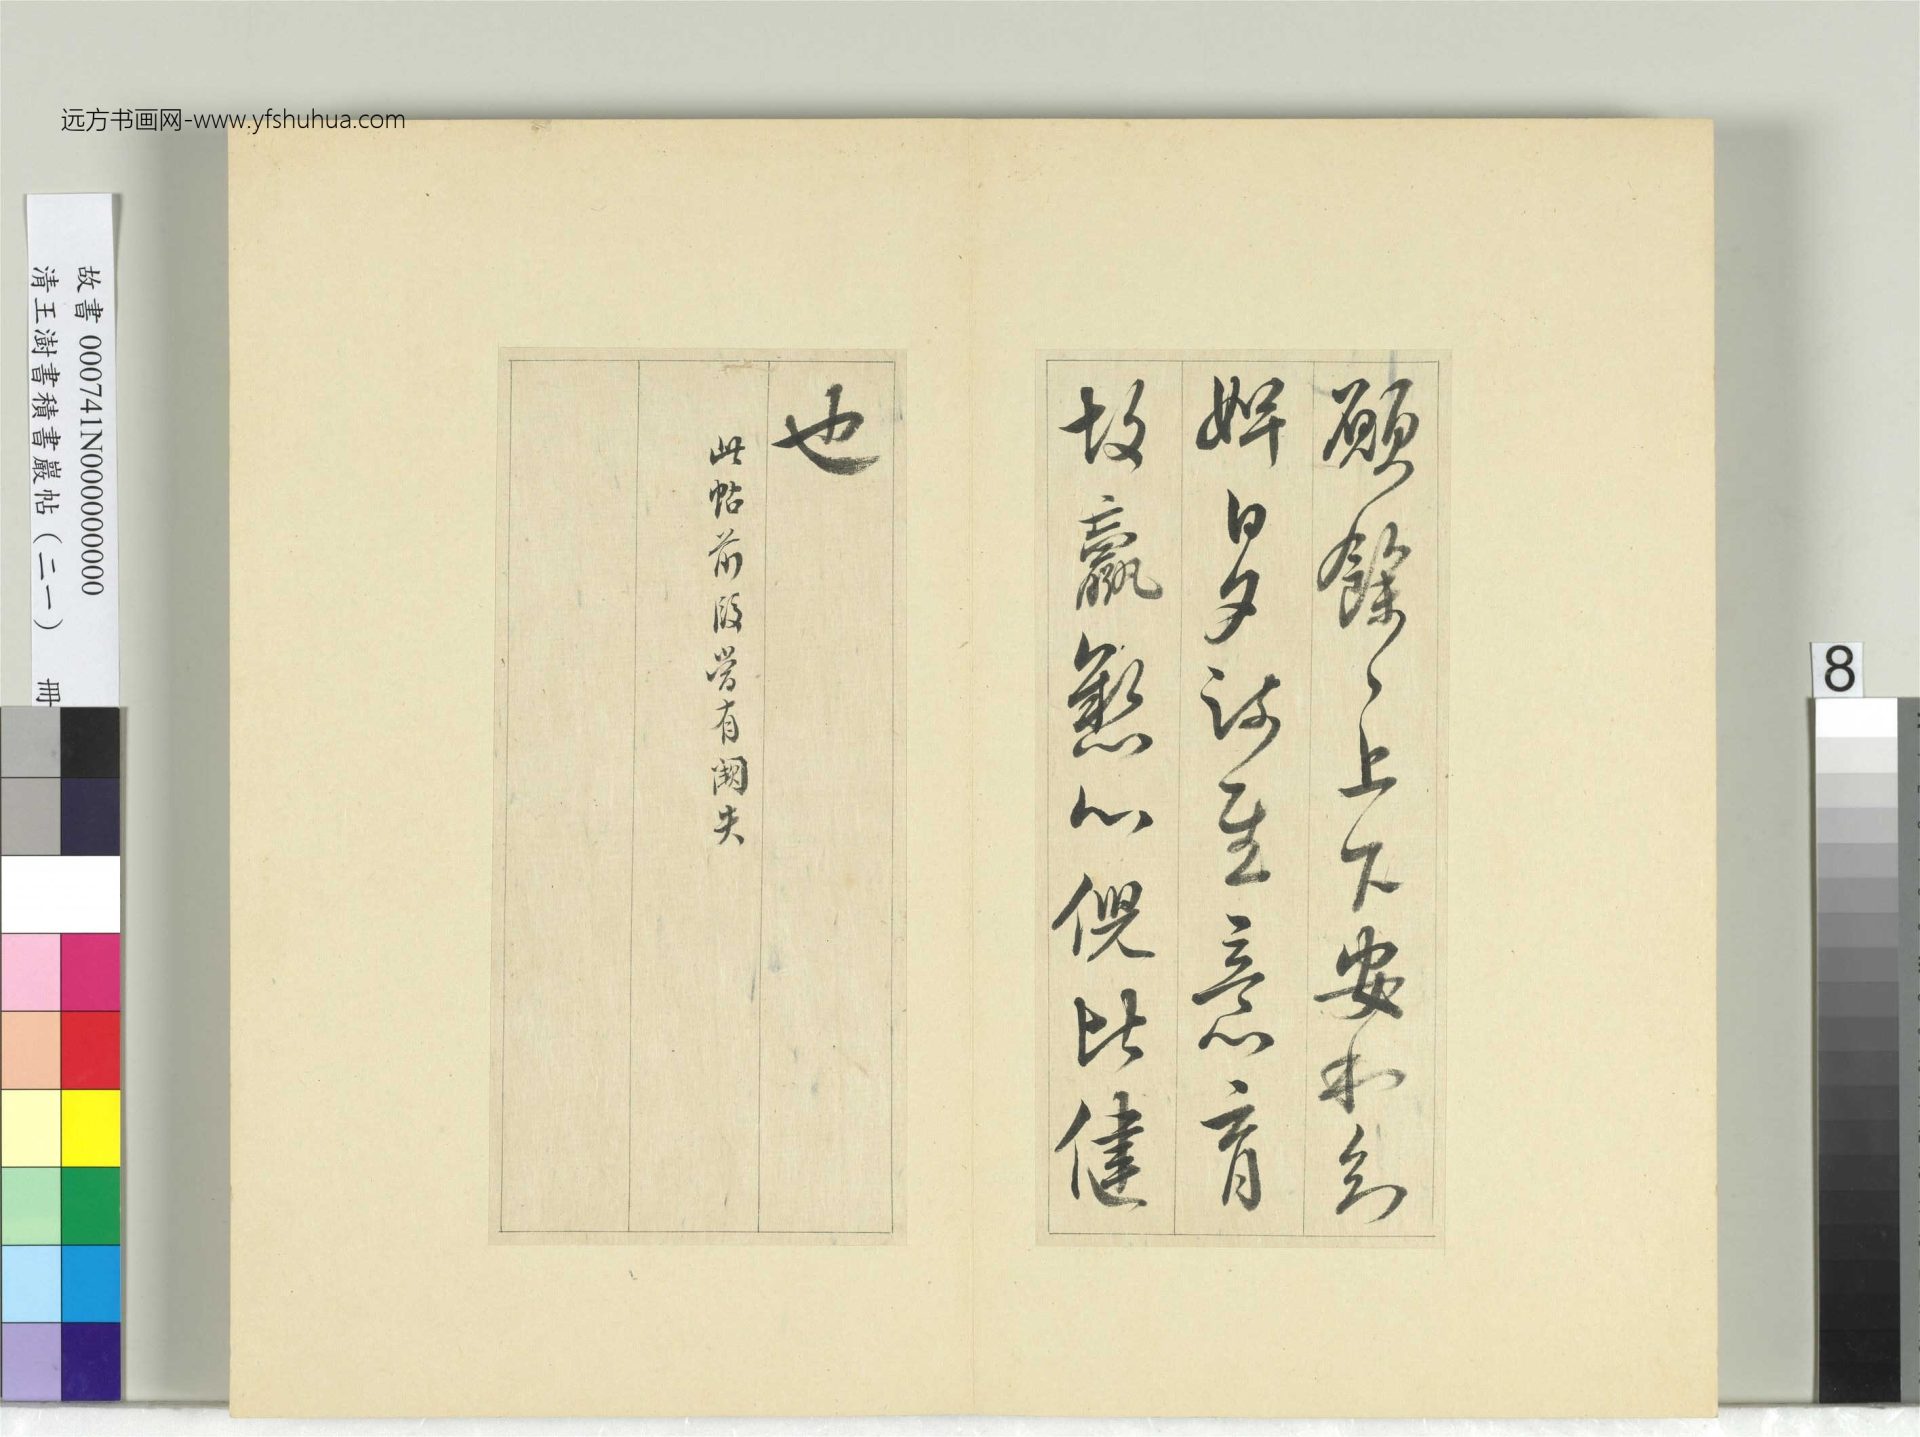 远方书画网-www.yfshuhua.com
故書 000741N000000000
清王澍書積書巖帖（二一） 冊
8
願餘〻上下安和知
婢日夕疏至意育
故羸心倪比健
也
此帖前段當有闕失